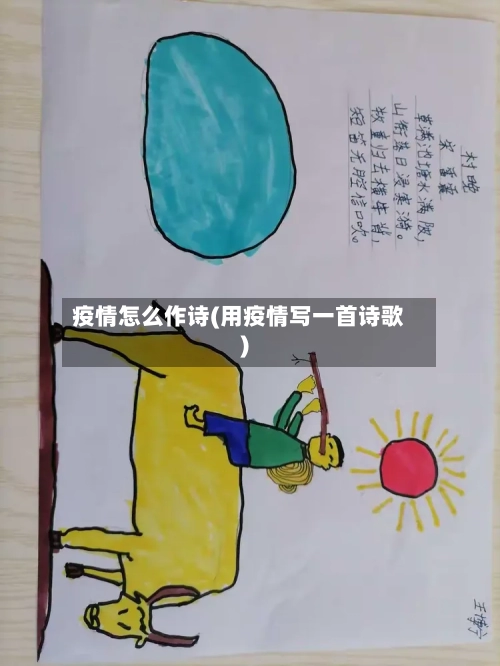 村晚
宋 雷震
草满池塘水满陂，
山衔落日浸寒漪。
牧童归去横牛背，
短笛无腔信口吹。
疫情怎么作诗(用疫情写一首诗歌
)